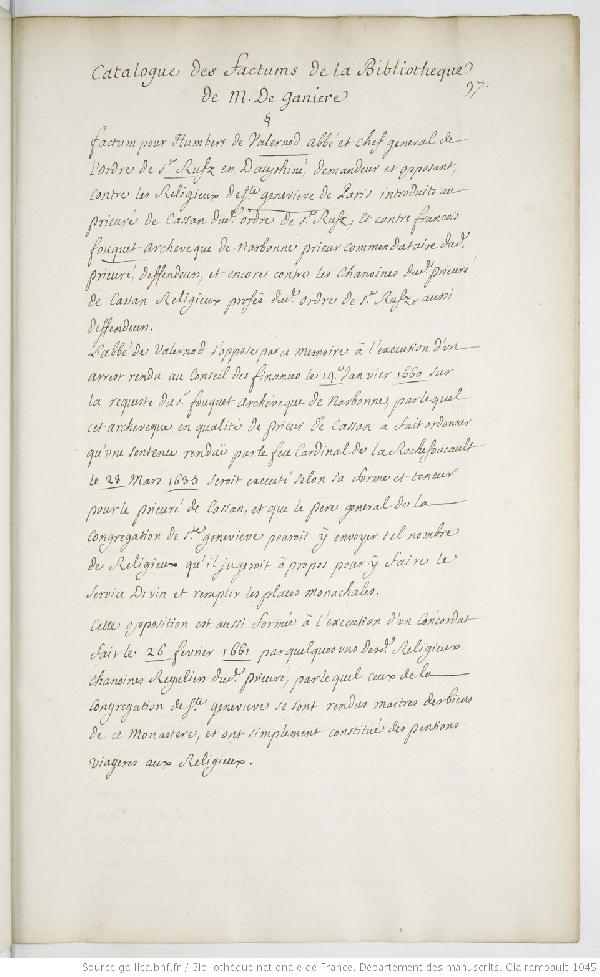 Catalogue des factums de la Bibliotheque
de M. De ganiere
97.
§
factum pour Humbert de Valernod abbé et chef general de
l'ordre de st. Rufz en Dauphiné, demandeur et opposant,
contre les Religieux de ste genevieve de Paris introduits au
prieuré de Cassan dud. ordre de st. Rufz, Et contre francois
fouquet archeveque de Narbonne prieur commendataire dud.
prieuré, deffendeur, et encore contre les Chanoines dud. prieuré
de Cassan Religieux profès dud. ordre de st. Rufz, aussi
deffendeur.
L'abbé de Valernod s'oppose par ce memoire à l'execution d'un
arrest rendu au Conseil des finances le 14e Janvier 1660 sur
la requeste du sr. fouquet archeveque de Narbonne, par lequel
cet archeveque en qualité de prieur de Cassan a fait ordonner
qu'une sentence renduë par le feu Cardinal de la Rochefoucault
le 23 Mars 1635 seroit executé selon sa forme et teneur
pour le prieuré de Cassan, et que le pere general de la
Congregation de ste genevieve pouroit y envoyer tel nombre
de Religieux qu'il jugeroit à propos pour y faire le
service Divin et remplir les places monachales.
Cette opposition est aussi formée à l'execution d'un Concordat
fait le 26 fevrier 1661 par quelques uns desd. Religieux
chanoines Reguliers dud. prieuré, par lequel ceux de la
Congregation de ste genevieve se sont rendus maitres des biens
de ce Monastere, et ont simplement constitué des pentions
viageres aux Religieux.
Source gallica.bnf.fr / Bibliothèque nationale de France. Département des manuscrits. Clairambault 1045